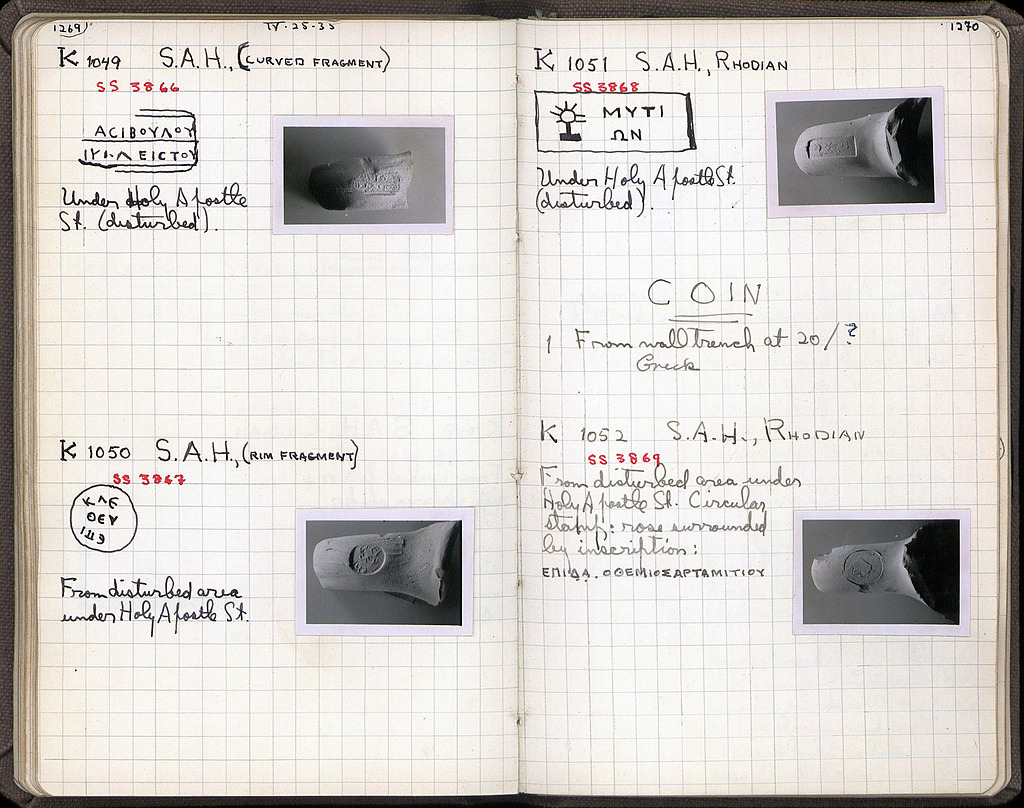 1269
IV-25-35
K 1049 S.A.H., (CURVED FRAGMENT)
SS 3866
ΑΣΙΒΟΥΛΟΥ
ΕΙΣΤΟΥ
Under Holy Apostle
St. (disturbed).
K 1050 S.A.H., (RIM FRAGMENT)
SS 3867
ΚΛΕ
ΘΕΥ
From disturbed area
under Holy Apostle St.
1270
K 1051 S.A.H., RHODIAN
SS 3868
ΜΥΤΙ
ΩΝ
Under Holy Apostle St.
(disturbed).
COIN
1 From wall trench at 20/?
Greek
K 1052 S.A.H., RHODIAN
SS 3869
From disturbed area under
Holy Apostle St. Circular
stamp: rose surrounded
by inscription:
ΕΠΙΔΑ.ΟΘΕΜΙΟΣΑΡΤΑΜΙΤΙΟΥ